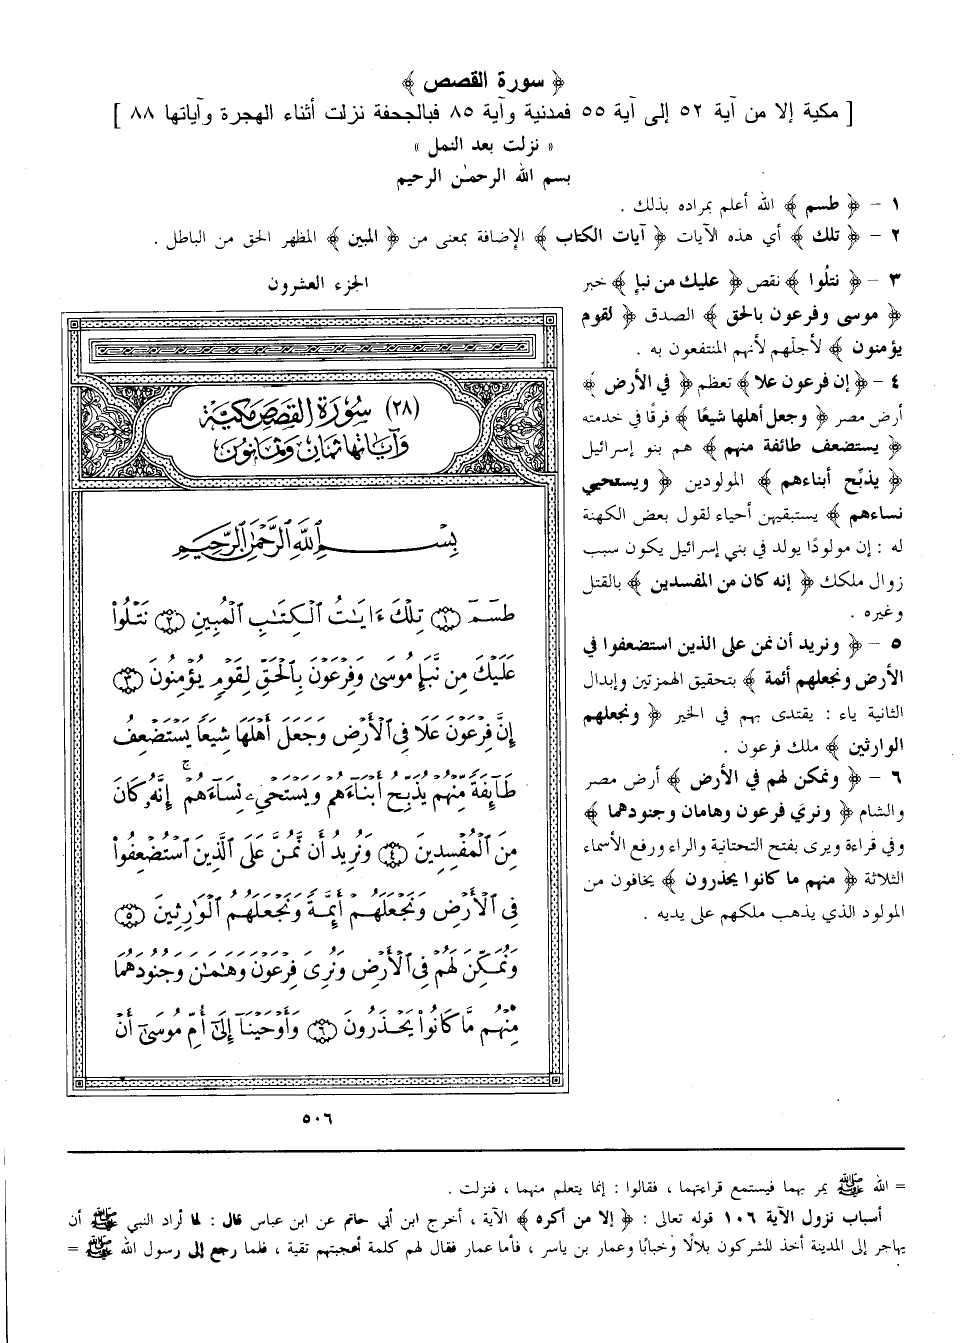 ﴿ سورة القصص ﴾
[ مكية إلا من آية ٥٢ إلى آية ٥٥ فمدنية وآية ٨٥ فبالجحفة نزلت أثناء الهجرة وآياتها ٨٨ ]
« نزلت بعد النمل »
بسم الله الرحمٰن الرحيم
١ - ﴿ طسم ﴾ الله أعلم بمراده بذلك .
٢ - ﴿ تلك ﴾ أي هذه الآيات ﴿ آيات الكتاب ﴾ الإضافة بمعنى من ﴿ المبين ﴾ المظهر الحق من الباطل .
٣ - ﴿ نتلُوا ﴾ نقص ﴿ عليك من نبإ ﴾ خبر
﴿ موسى وفرعون بالحق ﴾ الصدق ﴿ لقوم
يؤمنون ﴾ لأجلهم لأنهم المنتفعون به .
٤ - ﴿ إن فرعون علا ﴾ تعظم ﴿ في الأرض ﴾
أرض مصر ﴿ وجعل أهلها شيعًا ﴾ فرقًا في خدمته
﴿ يستضعف طائفة منهم ﴾ هم بنو إسرائيل
﴿ يذبِّح أبناءهم ﴾ المولودين ﴿ ويستحيي
نساءهم ﴾ يستبقيهن أحياء لقول بعض الكهنة
له : إن مولودًا يولد في بني إسرائيل يكون سبب
زوال ملكك ﴿ إنه كان من المفسدين ﴾ بالقتل
وغيره .
٥ - ﴿ ونريد أن نمن على الذين استضعفوا في
الأرض ونجعلهم أئمة ﴾ بتحقيق الهمزتين وإبدال
الثانية ياء : يقتدى بهم في الخير ﴿ ونجعلهم
الوارثين ﴾ ملك فرعون .
٦ - ﴿ ونمكن لهم في الأرض ﴾ أرض مصر
والشام ﴿ ونري فرعون وهامان وجنودهما ﴾
وفي قراءة ويرى بفتح التحتانية والراء ورفع الأسماء
الثلاثة ﴿ منهم ما كانوا يحذرون ﴾ يخافون من
المولود الذي يذهب ملكهم على يديه .
الجزء العشرون
(٢٨) سُورَة القَصَصِ مَكيّة
وَآياتهَا ثمَان وَثمَانُونَ
بِسْمِ ٱللَّهِ ٱلرَّحْمَٰنِ ٱلرَّحِيمِ
طسٓمٓ ١ تِلْكَ ءَايَٰتُ ٱلْكِتَٰبِ ٱلْمُبِينِ ٢ نَتْلُوا۟
عَلَيْكَ مِن نَّبَإِ مُوسَىٰ وَفِرْعَوْنَ بِٱلْحَقِّ لِقَوْمٍ يُؤْمِنُونَ ٣
إِنَّ فِرْعَوْنَ عَلَا فِى ٱلْأَرْضِ وَجَعَلَ أَهْلَهَا شِيَعًا يَسْتَضْعِفُ
طَآئِفَةً مِّنْهُمْ يُذَبِّحُ أَبْنَآءَهُمْ وَيَسْتَحْىِۦ نِسَآءَهُمْ ۚ إِنَّهُۥ كَانَ
مِنَ ٱلْمُفْسِدِينَ ٤ وَنُرِيدُ أَن نَّمُنَّ عَلَى ٱلَّذِينَ ٱسْتُضْعِفُوا۟
فِى ٱلْأَرْضِ وَنَجْعَلَهُمْ أَئِمَّةً وَنَجْعَلَهُمُ ٱلْوَٰرِثِينَ ٥
وَنُمَكِّنَ لَهُمْ فِى ٱلْأَرْضِ وَنُرِىَ فِرْعَوْنَ وَهَٰمَٰنَ وَجُنُودَهُمَا
مِنْهُم مَّا كَانُوا۟ يَحْذَرُونَ ٦ وَأَوْحَيْنَآ إِلَىٰٓ أُمِّ مُوسَىٰٓ أَنْ
٥٠٦
= الله ﷺ يمر بهما فيستمع قراءتهما ، فقالوا : إنما يتعلم منهما ، فنزلت .
أسباب نزول الآية ١٠٦ قوله تعالى : ﴿ إلا من أكره ﴾ الآية ، أخرج ابن أبي حاتم عن ابن عباس قال : لما أراد النبي ﷺ أن
يهاجر إلى المدينة أخذ المشركون بلالًا وخبابًا وعمار بن ياسر ، فأما عمار فقال لهم كلمة أعجبتهم تقية ، فلما رجع إلى رسول الله ﷺ =